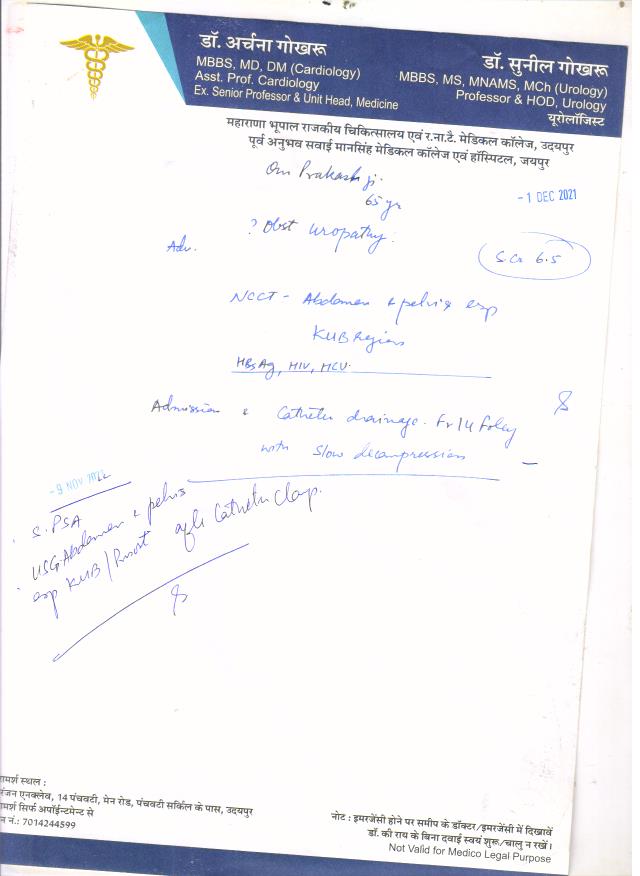 डॉ. अर्चना गोखरू
MBBS, MD, DM (Cardiology)
Asst. Prof. Cardiology
Ex. Senior Professor & Unit Head, Medicine
डॉ. सुनील गोखरू
MBBS, MS, MNAMS, MCh (Urology)
Professor & HOD, Urology
यूरोलॉजिस्ट
महाराणा भूपाल राजकीय चिकित्सालय एवं र.ना.टै. मेडिकल कॉलेज, उदयपुर
पूर्व अनुभव सवाई मानसिंह मेडिकल कॉलेज एवं हॉस्पिटल, जयपुर
Om Prakash ji.
65 yr
-1 DEC 2021
? Obst uropathy.
Adv.
S.Cr 6.5
NCCT - Abdomen & pelvis esp
KUB Region
HBsAg, HIV, HCV.
Admission & Catheter drainage. Fr 14 Foley
with slow decompression
-9 NOV 2022
S. PSA
USG Abdomen & pelvis
esp KUB / Prost after Catheter Clamp.
रामर्श स्थल :
रंजन एनक्लेव, 14 पंचवटी, मेन रोड, पंचवटी सर्किल के पास, उदयपुर
रामर्श सिर्फ अपॉईन्टमेन्ट से
न नं.: 7014244599
नोट : इमरजेंसी होने पर समीप के डॉक्टर/इमरजेंसी में दिखावें
डॉ. की राय के बिना दवाई स्वयं शुरू/चालु न रखें।
Not Valid for Medico Legal Purpose